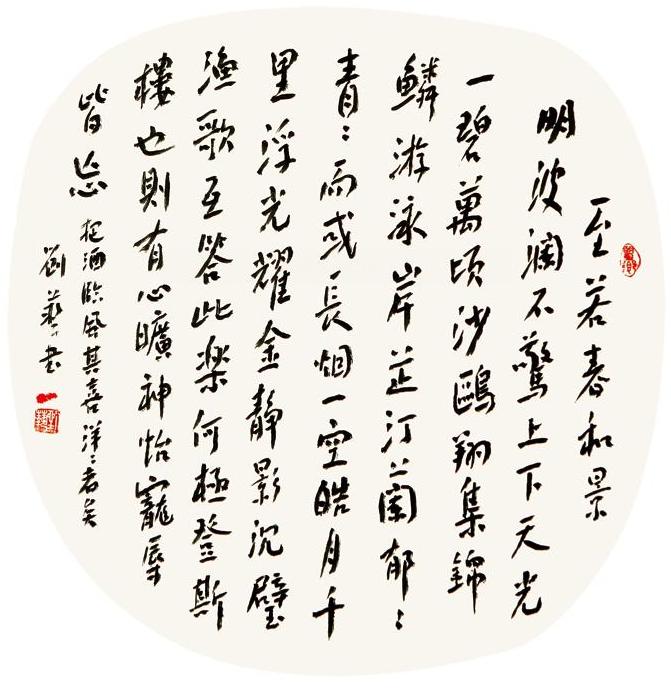 至若春和景
明波瀾不驚上下天光
一碧萬頃沙鷗翔集錦
鱗游泳岸芷汀蘭郁〻
青〻而或長烟一空皓月千
里浮光耀金静影沉璧
渔歌互答此樂何極登斯
樓也則有心曠神怡寵辱
皆忘把酒臨風其喜洋〻者矣
劉藝書